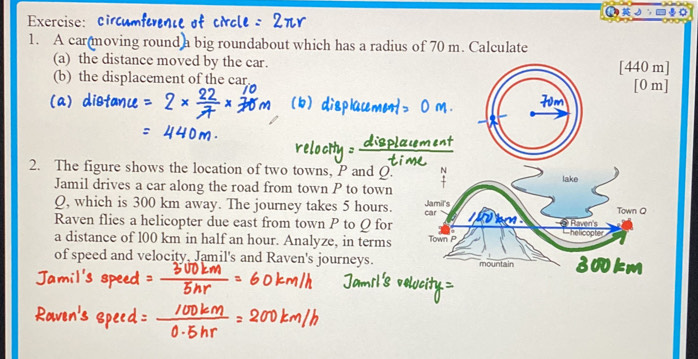 Exercise: circumference of circle = 2πr
1. A car moving round a big roundabout which has a radius of 70 m. Calculate
(a) the distance moved by the car. [440 m]
(b) the displacement of the car. [0 m]
(a) distance = 2 × 22/7 × 70 10 m
= 440m.
(b) displacement = 0 m.
70m
velocity = displacement / time
2. The figure shows the location of two towns, P and Q.
Jamil drives a car along the road from town P to town
Q, which is 300 km away. The journey takes 5 hours.
Raven flies a helicopter due east from town P to Q for
a distance of 100 km in half an hour. Analyze, in terms
of speed and velocity, Jamil's and Raven's journeys.
N
lake
Jamil's
car
Town Q
100 km.
Raven's
helicopter
Town P
mountain
300km
Jamil's speed = 300km / 5hr = 60km/h
Jamil's velocity =
Raven's speed = 100km / 0.5hr = 200km/h